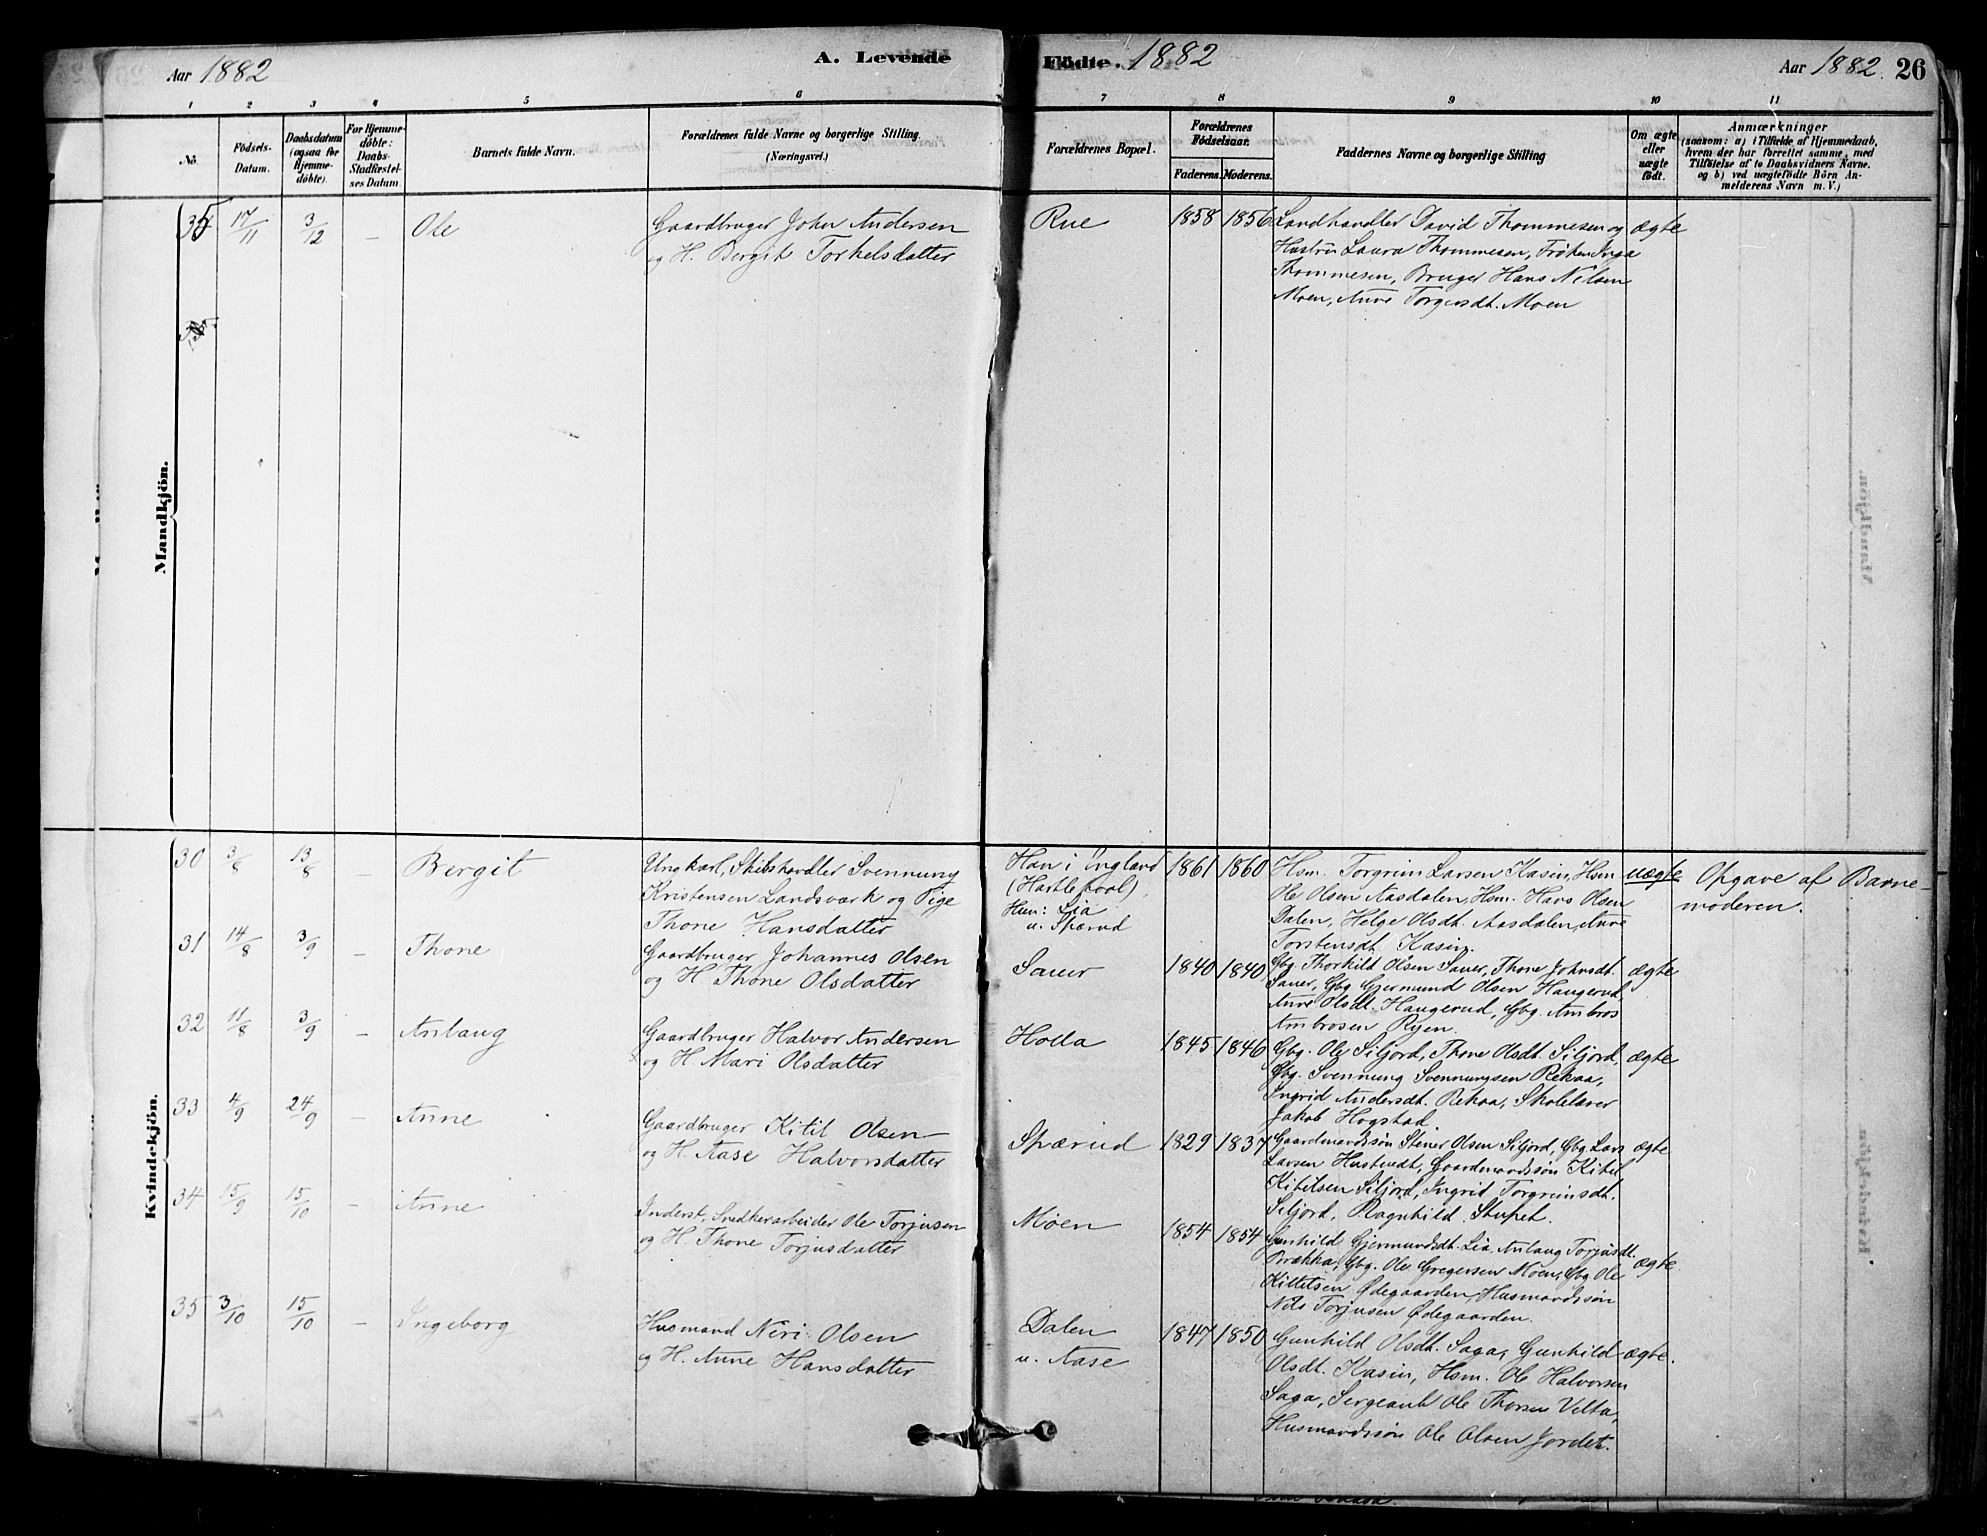 Aar 1882
A. Levende
Födte. 1882
Aar 1882.
26
1 2 3 4 5 6 7 8 9 10 11
No.
Födsels-
Datum.
Daabsdatum
(ogsaa for
Hjemme-
döbte).
For Hjemme-
döbte:
Daabs-
Stadfæstel-
ses Datum.
Barnets fulde Navn.
Forældrenes fulde Navne og borgerlige Stilling.
(Næringsvei.)
Forældrenes Bopæl.
Forældrenes
Födselsaar.
Faderens. Moderens.
Faddernes Navne og borgerlige Stilling
Om ægte
eller
uægte
födt.
Anmærkninger
(saasom: a) i Tilfælde af Hjemmedaab,
hvem der har forrettet samme, med
Tilföielse af to Daabsvidners Navne.
og b) ved uægtefödte Börn An-
melderens Navn m. V.)
Mandkjön.
35 17/11 3/12 – Ole
Gaardbruger John Andersen
og H. Bergit Torkelsdatter
Rue
1858 1856
Landhandler David Thommesen og
Hustru Laura Thommesen, Frøken Inga
Thommesen, Bruger Hans Nilsen
Moen, Anne Torgersdt. Moen
ægte
Kvindekjön.
30 3/8 13/8 – Bergit
Ungkarl, Skibshandler Svennung
Kristensen Landsværk og Pige
Thone Hansdatter
Han i England
(Hartlepool),
Hun: Lia
u. Spærud
1861 1860
Hsm. Torgrim Larsen Kasin, Hsm
Ole Olsen Aasdalen, Hsm. Hans Olsen
Dalen, Helge Olsdt. Aasdalen, Anne
Torstensdt. Kasin.
uægte
Opgave af Barne-
moderen.
31 14/8 3/9 – Thone
Gaardbruger Johannes Olsen
og H. Thone Olsdatter
Sauer
1840 1840
Gbg. Thorkild Olsen Sauer, Thone Johnsdt.
Sauer, Gbg Gjermund Olsen Haugerud,
Anne Olsdt. Haugerud, Gbg. Ambros
Ambrosen Ryen.
ægte
32 11/8 3/9 – Anlaug
Gaardbruger Halvor Andersen
og H. Mari Olsdatter
Holla
1845 1846
Gbg. Ole Siljord, Thone Olsdt. Siljord,
Gbg. Svennung Svennungsen Rekaa,
Ingrid Andersdt. Rekaa, Skolelærer
Jakob Hogstad
ægte
33 4/9 24/9 – Anne
Gaardbruger Kitil Olsen
og H. Aase Halvorsdatter
Spærud
1829 1837
Gaardmandssøn Stener Olsen Siljord, Gbg Lars
Larsen Hustvedt, Gaardmandssøn Kitil
Kitilsen Siljord, Ingrid Torgrimsdt.
Siljord, Ragnhild Stupet.
ægte
34 15/9 15/10 – Anne
Inderst, Snedkerarbeider Ole Torjusen
og H. Thone Torjusdatter
Moen
1854 1854
Gunhild Gjermundsdt. Lia, Anlaug Torjusdt.
Brækka, Gbg. Ole Gregersen Moen, Gbg Ole
Kittilsen Ødegaarden, Husmandssøn
Nils Torjusen Ødegaarden.
ægte
35 3/10 15/10 – Ingeborg
Husmand Neri Olsen
og H. Anne Hansdatter
Dalen
u. Aase
1847 1850
Gunhild Olsdt. Saga, Gunhild
Olsdt. Kasin, Hsm. Ole Halvorsen
Saga, Sergeant Ole Thorsen Velta,
Husmandssøn Ole Olsen Jordet.
ægte.